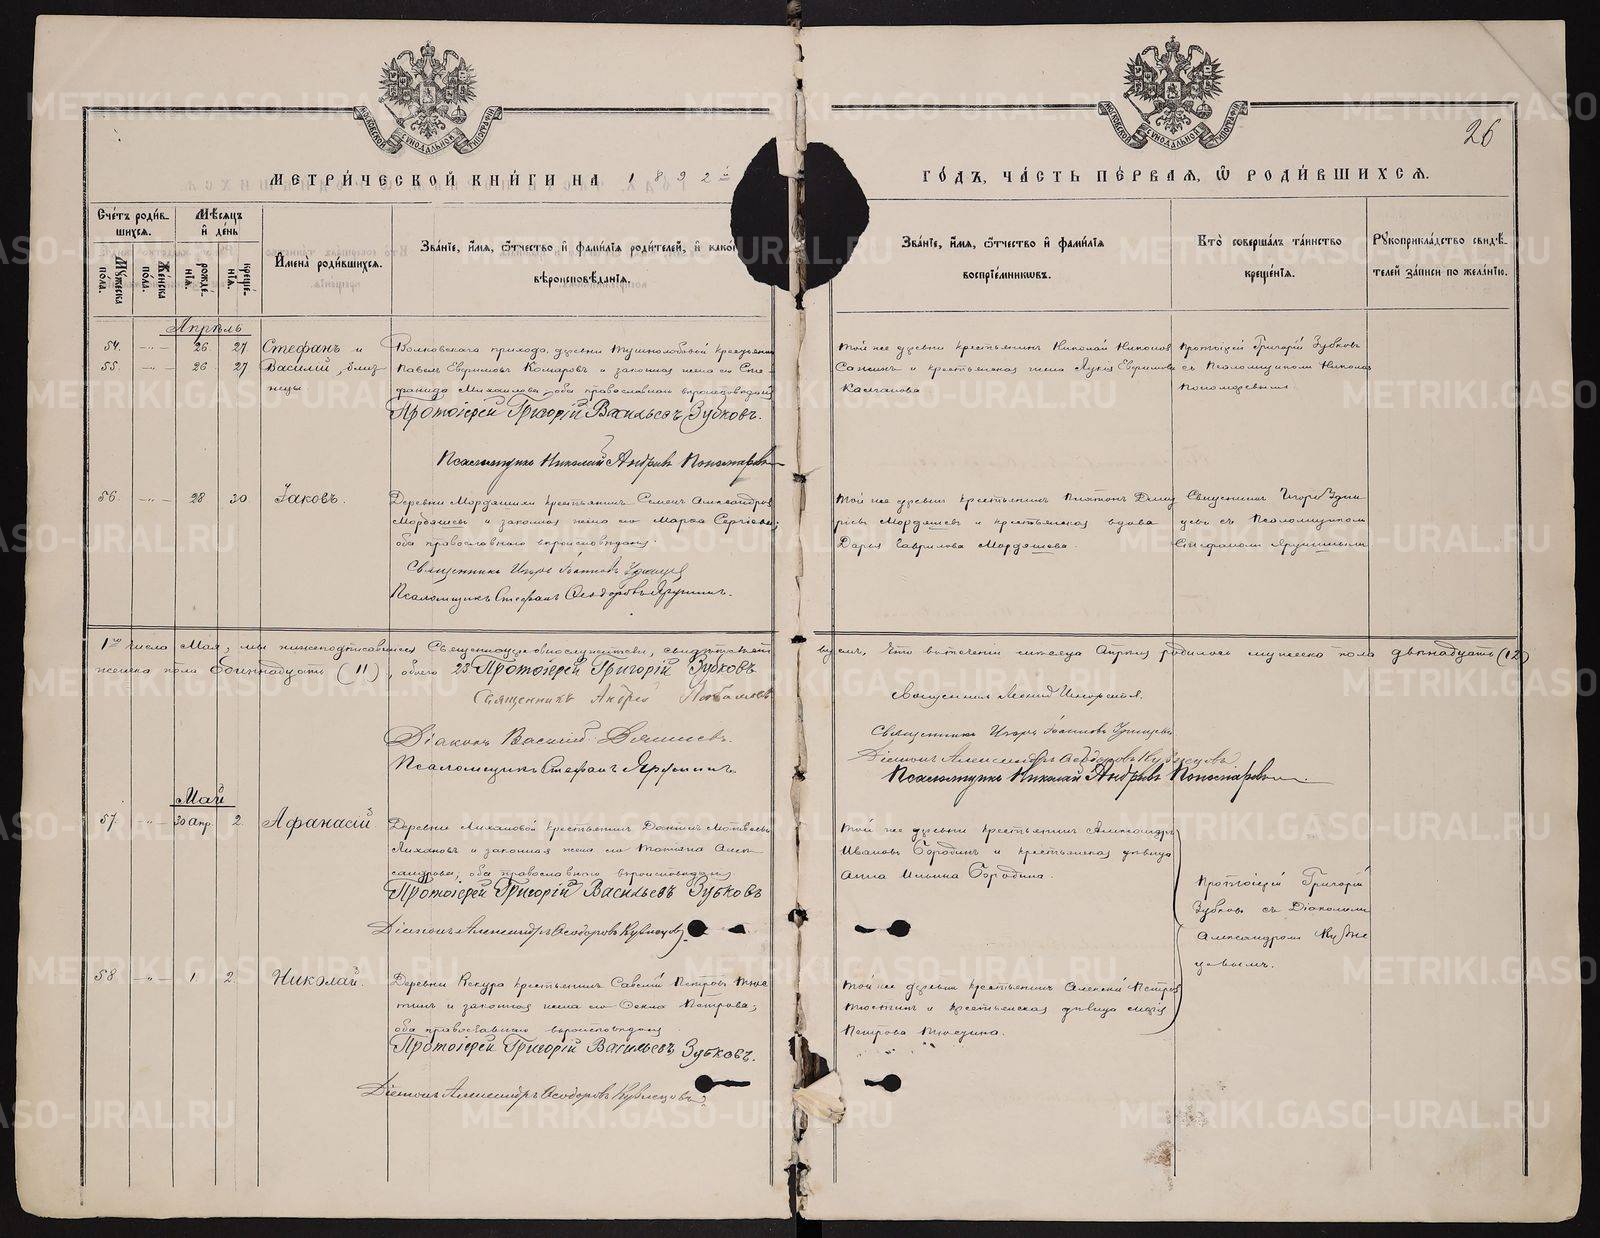 26
МЕТРИ́ЧЕСКОЙ КНИ́ГИ НА 1892 й
ГО́ДЪ, ЧА́СТЬ ПЕ́РВАЯ, Ѽ РОДИ́ВШИХСЯ.
Сче́тъ роди́в-
шихся.
Мѣ́сяцъ
и́ де́нь
Му́жеска по́ла.
Же́нска по́ла.
рожде́-
нїя.
креще́-
нїя.
И́мена роди́вшихся.
Зва́нїе, и́мя, ѻ́тчество и́ фами́лїя роди́телей, и́ како́
вѣроисповѣ́данїя.
Зва́нїе, и́мя, ѻ́тчество и́ фами́лїя
воспрїе́мниковъ.
Кто̀ соверша́лъ та́инство
креще́нїя.
Рꙋкоприкла́дство свидѣ́-
телей за́писи по жела́нїю.
Апрѣль
54. -"- 26 27 Стефанъ и
55. -"- 26 27 Василій, близ
нецы
Волковскаго прихода, деревни крестьянинъ
Павелъ Комаровъ и законная жена его Сте-
фанида Михаилова, оба православнаго вѣроисповѣданія
Протоіерей Григорій Васильевъ Зубковъ.
Псаломщикъ Николай Андреевъ Пономаревъ
Той же деревни крестьянинъ Николай Николаевъ
и крестьянская жена
Протоіерей Григорій Зубковъ
съ Псаломщикомъ Николаемъ
Пономаревымъ
56 -"- 28 30 Іаковъ.
Деревни Мордяшихи крестьянинъ Семенъ Александровъ
Мордяшевъ и законная жена его Марѳа Сергіева;
оба православнаго вѣроисповѣданія.
Священникъ Игорь Іоанновъ
Псаломщикъ Стефанъ Ѳеодоровъ Ярушинъ.
Той же деревни крестьянинъ Платонъ Димит
ріевъ Мордяшевъ и крестьянская вдова
Дарья Гаврилова Мордяшева.
Священникъ Игорь
съ Псаломщикомъ
Стефаномъ Ярушинымъ
1го числа Мая, мы нижеподписавшіеся Священноцерковнослужители, свидѣтельст
вуемъ, что въ теченіи мѣсяца Апрѣля родилось мужеска пола двѣнадцать (12)
женска пола одиннадцать (11), обоего 23. Протоіерей Григорій Зубковъ
Священникъ Андрей
Священникъ Леонидъ Игнорский.
Діаконъ Василій
Священникъ Игорь Іоанновъ
Псаломщикъ Стефанъ Ярушинъ.
Діаконъ Александръ Ѳеодоровъ Кузнецовъ
Псаломщикъ Николай Андреевъ Пономаревъ
Май
57. -"- 30 апр. 2. Аѳанасій
Деревни Лихановой крестьянинъ Даніилъ Матвѣевъ
Лихановъ и законная жена его Татіана Алек-
сандрова; оба православнаго вѣроисповѣданія
Протоіерей Григорій Васильевъ Зубковъ
Діаконъ Александръ Ѳеодоровъ Кузнецовъ
Той же деревни крестьянинъ Александръ
Ивановъ Бородинъ и крестьянская дѣвица
Анна Ильина Бородина.
Протоіерей Григорій
Зубковъ съ Діакономъ
Александромъ Кузне
цовымъ.
58 -"- 1 2. Николай.
Деревни Кекура крестьянинъ Савелій Петровъ Тюс
тинъ и законная жена его Ѳекла Петрова;
оба православнаго вѣроисповѣданія
Протоіерей Григорій Васильевъ Зубковъ.
Діаконъ Александръ Ѳеодоровъ Кузнецовъ.
Той же деревни крестьянинъ Алексѣй Петровъ
и крестьянская дѣвица
Петрова
METRIKI.GASO-URAL.RU